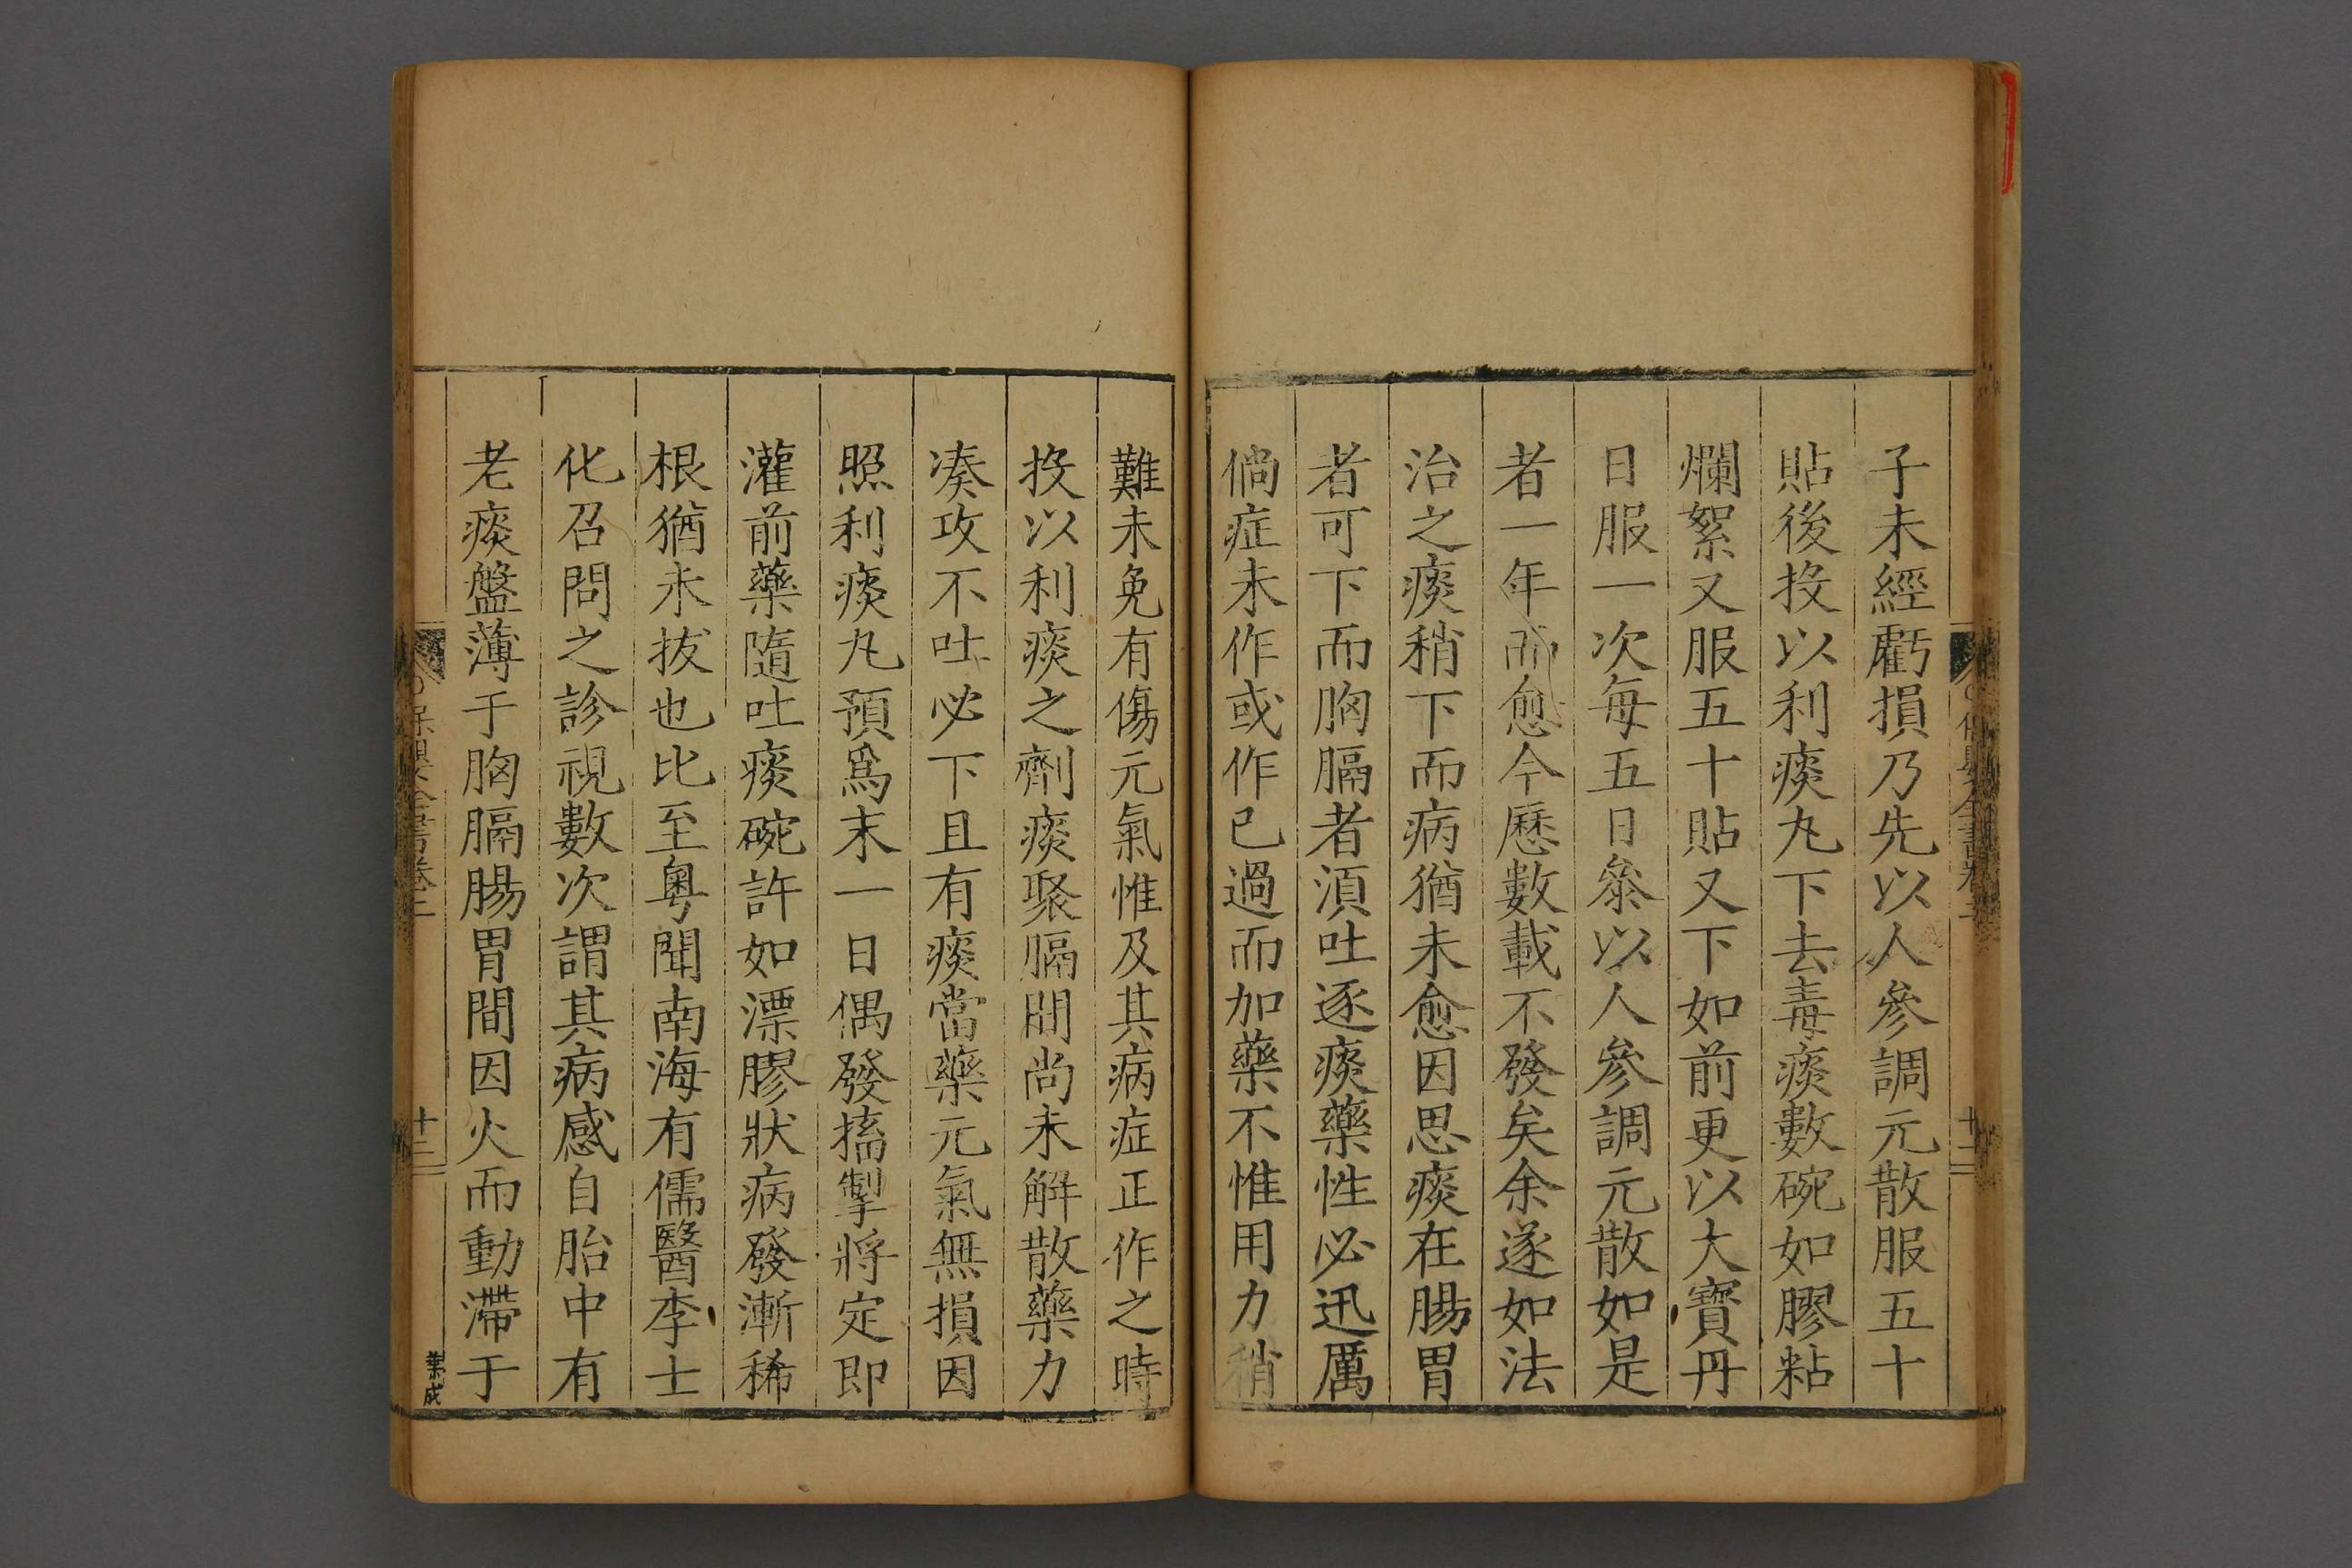 子未經虧損乃先以人參調元散服五十
貼後投以利痰丸下去毒痰數碗如膠粘
爛絮又服五十貼又下如前更以大寶丹
日服一次每五日叅以人參調元散如是
者一年而愈今歷數載不發矣余遂如法
治之痰稍下而病猶未愈因思痰在腸胃
者可下而胸膈者湏吐逐痰藥性必迅厲
倘症未作或作已過而加藥不惟用力稍
難未免有傷元氣惟及其病症正作之時
投以利痰之劑痰聚膈間尚未解散藥力
凑攻不吐必下且有痰當藥元氣無損因
照利痰丸預爲末一日偶發搐掣將定即
灌前藥隨吐痰碗許如漂膠狀病發漸稀
根猶未拔也比至粵聞南海有儒醫李士
化召問之診視數次謂其病感自胎中有
老痰盤薄于胸膈腸胃間因火而動滯于
十二
葉成